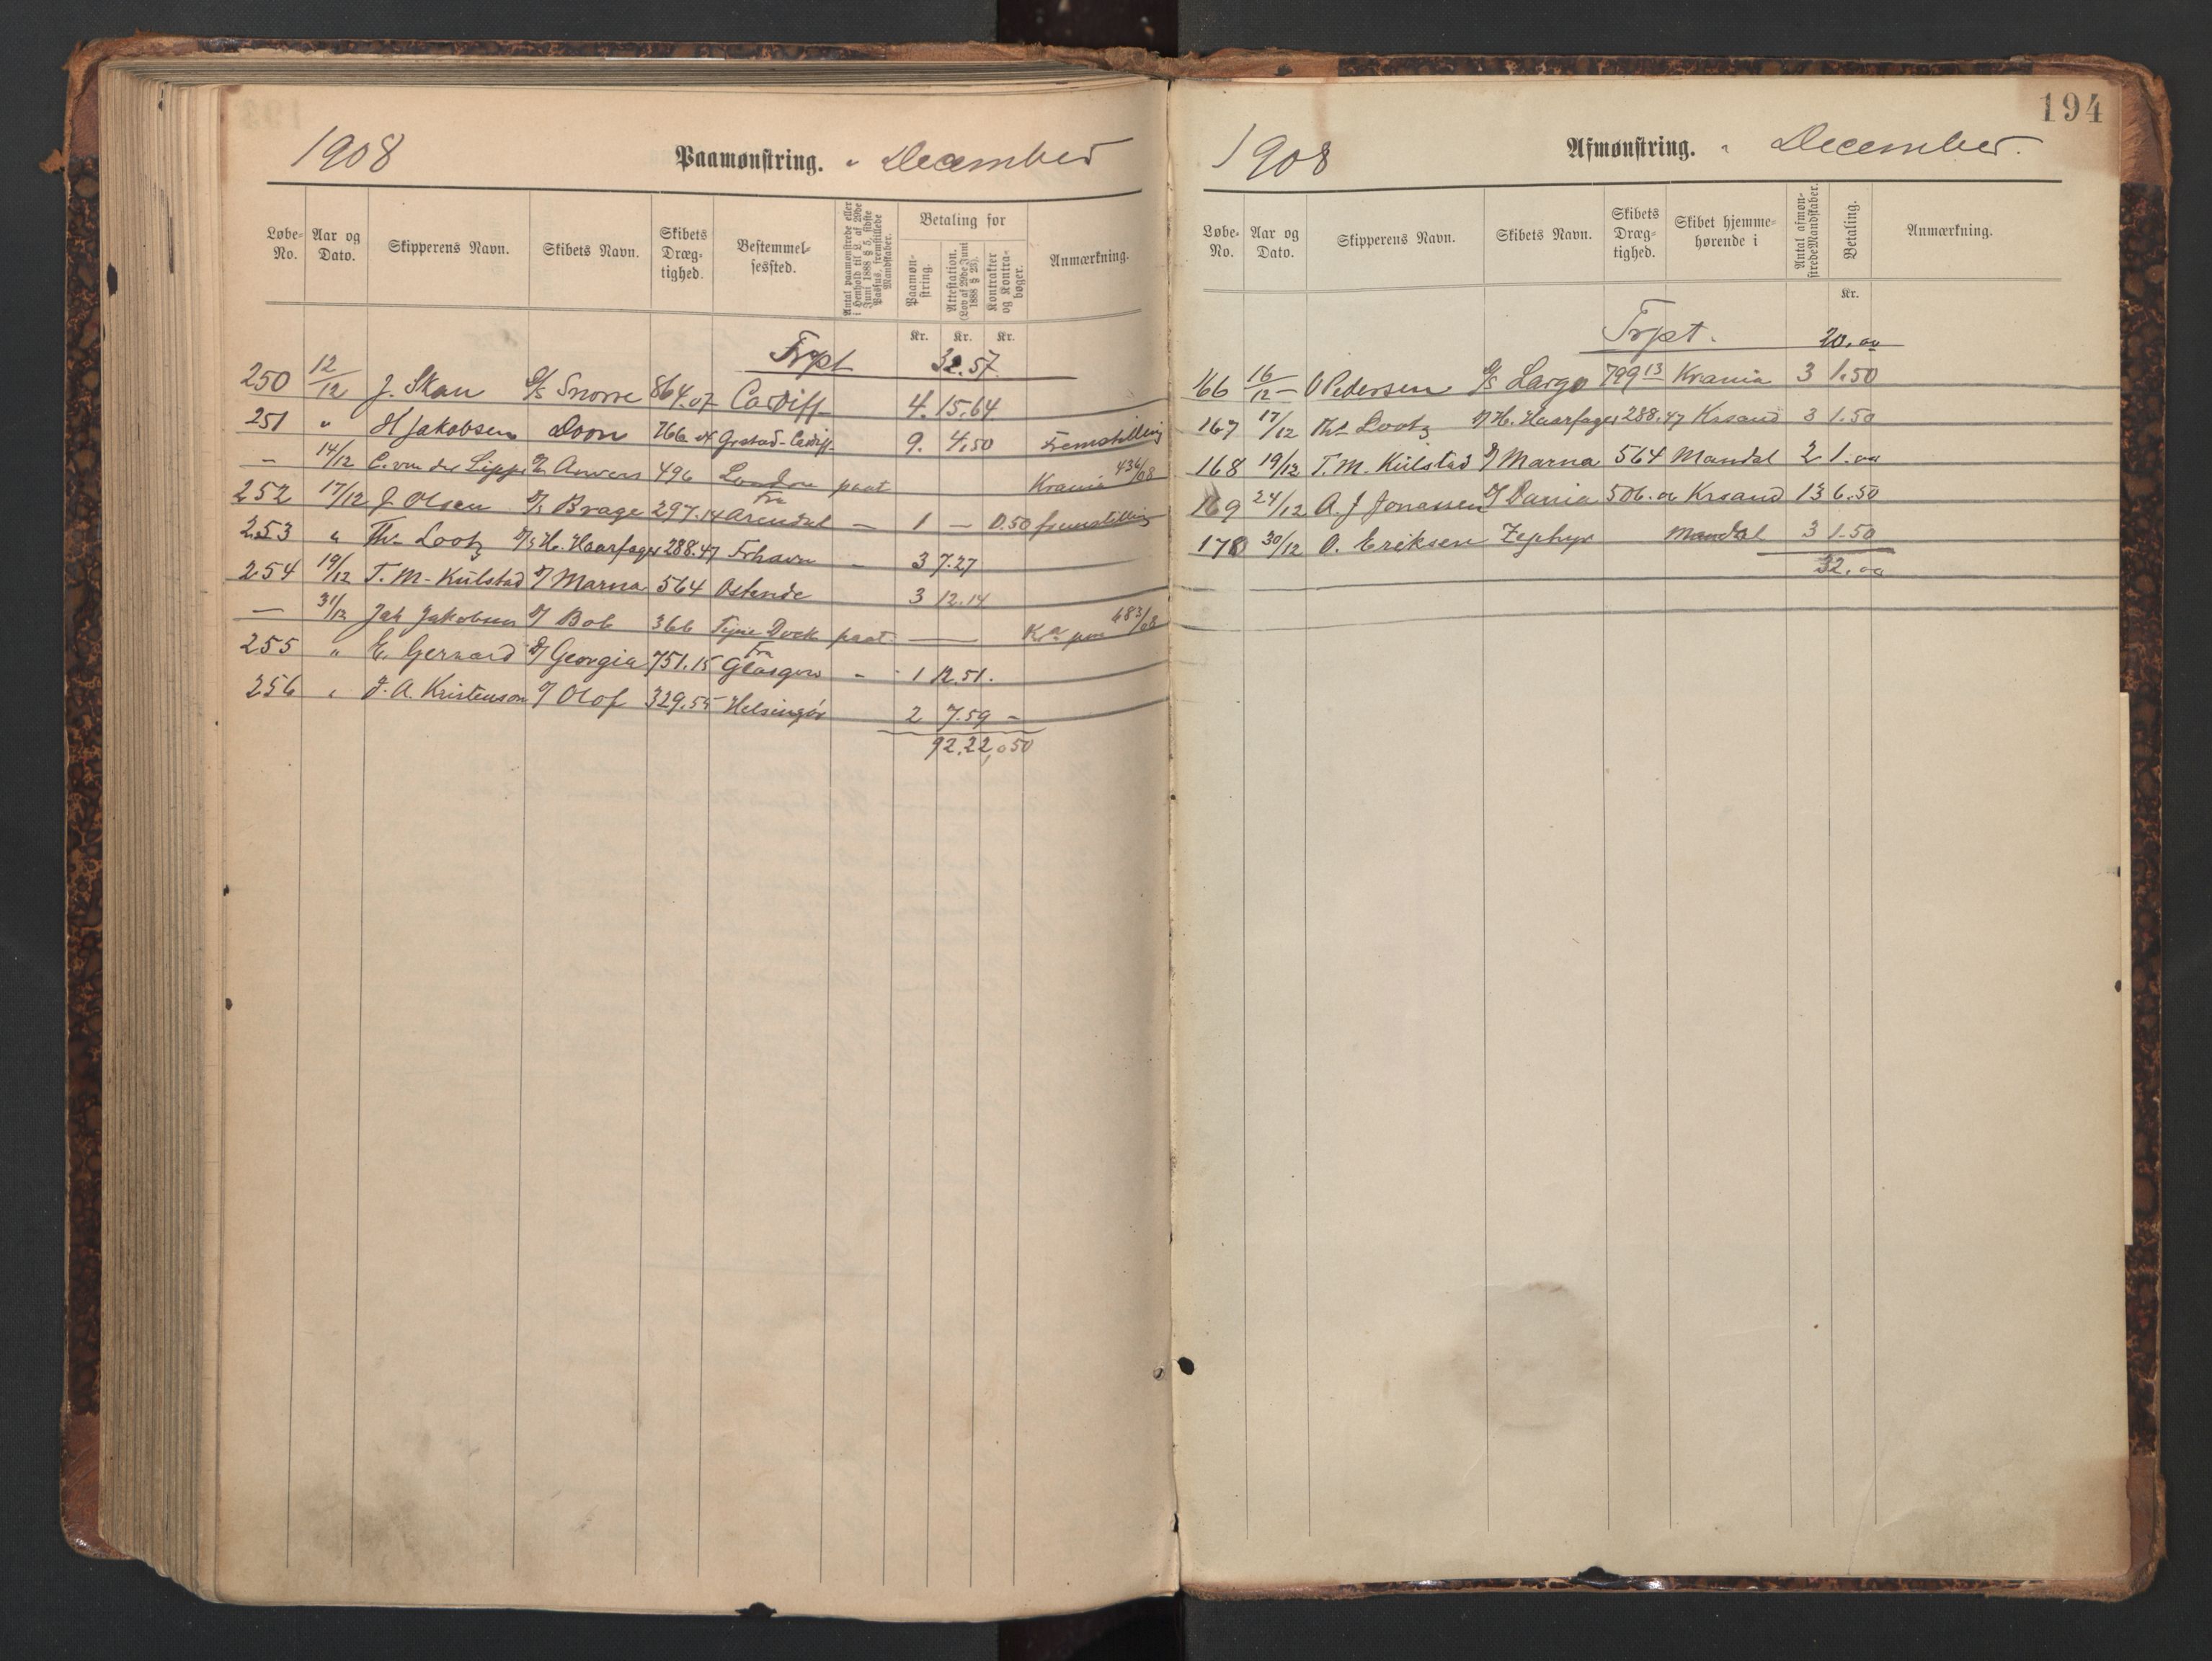 1908 Paamønstring. " December
Løbe-No. Aar og Dato. Skipperens Navn. Skibets Navn. Skibets Dræg-tighed. Bestemmel-sessted. Antal paamønstrede eller i Henhold til L. af 29de Juni 1888 § 5, sidste Passus, fremstillede Mandskaber. Betaling for Paamøn-string. Attestation. (Lov af 29de Juni 1888 § 23). Kontrakter og Kontra-bøger. Anmærkning.
Kr. Kr. Kr.
Trpt 32.57
250 12/12 J. Skau S/S Snorre 864.07 Cardiff 4. 15.64
251 " H Jakobsen Doon 766 Grstad-Cardiff 9. 4.50 Fremstilling
— 14/12 C. von der Lippe Anvers 496 London paat Krania 436/08
252 17/12 J. Olsen Brage 297.14 fra Arendal — 1 — 0.50 fremstilling
253 " Th. Lootz D/S H. Haarfager 288.47 Frhavn — 3 7.27
254 19/12 T. M. Külstad D/ Marna 564 Ostende 3 12.14
— 31/12 Jak Jakobsen D/ Bob 366 Tyne Dock paat — 683/08
255 " E. Gerrard D/ Georgia 751.15 fra Glasgow - 1 12.51.
256 " J. A. Kristenson D/ Olof 329.55 Helsingør 2 7.59 -
92.22, 0.50
194
1908 Afmønstring. " December.
Løbe-No. Aar og Dato. Skipperens Navn. Skibets Navn. Skibets Dræg-tighed. Skibet hjemme-hørende i Antal afmøn-strede Mandskaber. Betaling. Anmærkning.
Kr.
Trpt. 20.00
166 16/12 O Pedersen S/S Largo 799 13 Krania 3 1.50
167 17/12 Th. Lootz D/ H. Haarfager 288.47 Krsand 3 1.50
168 19/12 T. M. Külstad D/ Marna 564 Mandal 2 1.00
169 24/12 A. J Jonassen D/ Dania 506.06 Krsand 13 6.50
170 30/12 O. Eriksen Zephyr Mandal 3 1.50
32.00